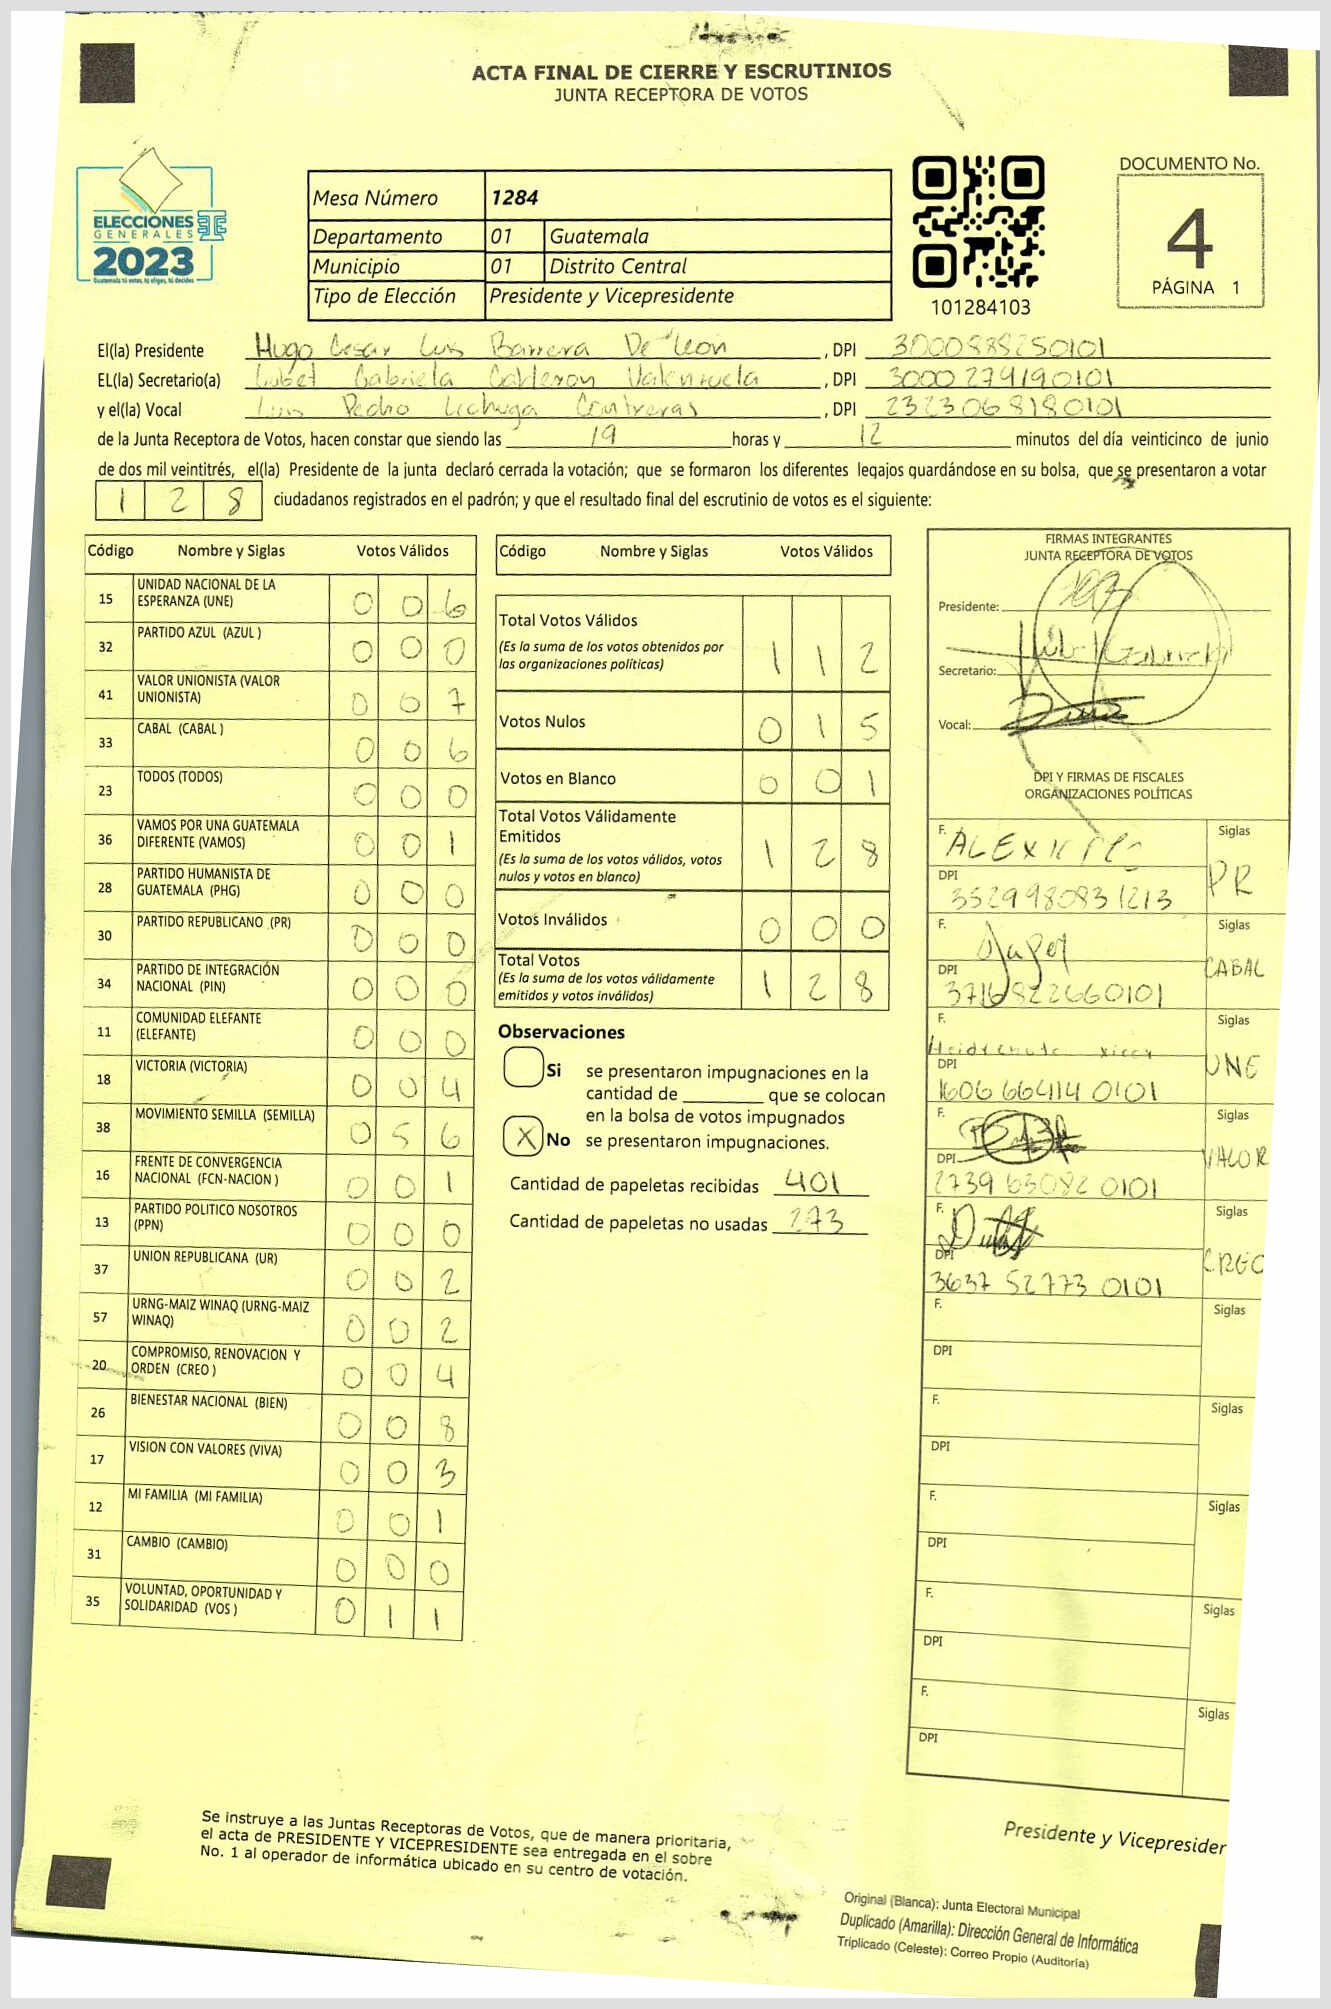 ACTA FINAL DE CIERRE Y ESCRUTINIOS
JUNTA RECEPTORA DE VOTOS
ELECCIONES
GENERALES
2023
Guatemala tú votas, tú eliges, tú decides
Mesa Número 1284
Departamento 01 Guatemala
Municipio 01 Distrito Central
Tipo de Elección Presidente y Vicepresidente
101284103
DOCUMENTO No.
4
PÁGINA 1
El(la) Presidente Hugo Cesar Luis Barrera De León, DPI 3000888250101
EL(la) Secretario(a) Lubet Gabriela Calderon Valenzuela, DPI 3000279190101
y el(la) Vocal Luis Pedro Lichuga Contreras, DPI 2323068180101
de la Junta Receptora de Votos, hacen constar que siendo las 19 horas y 12 minutos del día veinticinco de junio
de dos mil veintitrés, el(la) Presidente de la junta declaró cerrada la votación; que se formaron los diferentes legajos guardándose en su bolsa, que se presentaron a votar
128 ciudadanos registrados en el padrón; y que el resultado final del escrutinio de votos es el siguiente:
Código Nombre y Siglas Votos Válidos
15 UNIDAD NACIONAL DE LA ESPERANZA (UNE) 0 0 6
32 PARTIDO AZUL (AZUL ) 0 0 0
41 VALOR UNIONISTA (VALOR UNIONISTA) 0 0 7
33 CABAL (CABAL ) 0 0 6
23 TODOS (TODOS) 0 0 0
36 VAMOS POR UNA GUATEMALA DIFERENTE (VAMOS) 0 0 1
28 PARTIDO HUMANISTA DE GUATEMALA (PHG) 0 0 0
30 PARTIDO REPUBLICANO (PR) 0 0 0
34 PARTIDO DE INTEGRACIÓN NACIONAL (PIN) 0 0 0
11 COMUNIDAD ELEFANTE (ELEFANTE) 0 0 0
18 VICTORIA (VICTORIA) 0 0 4
38 MOVIMIENTO SEMILLA (SEMILLA) 0 5 6
16 FRENTE DE CONVERGENCIA NACIONAL (FCN-NACION ) 0 0 1
13 PARTIDO POLITICO NOSOTROS (PPN) 0 0 0
37 UNION REPUBLICANA (UR) 0 0 2
57 URNG-MAIZ WINAQ (URNG-MAIZ WINAQ) 0 0 2
20 COMPROMISO, RENOVACION Y ORDEN (CREO ) 0 0 4
26 BIENESTAR NACIONAL (BIEN) 0 0 8
17 VISION CON VALORES (VIVA) 0 0 3
12 MI FAMILIA (MI FAMILIA) 0 0 1
31 CAMBIO (CAMBIO) 0 0 0
35 VOLUNTAD, OPORTUNIDAD Y SOLIDARIDAD (VOS ) 0 1 1
Código Nombre y Siglas Votos Válidos
Total Votos Válidos 1 1 2
(Es la suma de los votos obtenidos por
las organizaciones políticas)
Votos Nulos 0 1 5
Votos en Blanco 0 0 1
Total Votos Válidamente
Emitidos 1 2 8
(Es la suma de los votos válidos, votos
nulos y votos en blanco)
Votos Inválidos 0 0 0
Total Votos 1 2 8
(Es la suma de los votos válidamente
emitidos y votos inválidos)
Observaciones
Si se presentaron impugnaciones en la
cantidad de ________ que se colocan
en la bolsa de votos impugnados
X No se presentaron impugnaciones.
Cantidad de papeletas recibidas 401
Cantidad de papeletas no usadas 273
FIRMAS INTEGRANTES
JUNTA RECEPTORA DE VOTOS
Presidente:
Secretario:
Vocal:
DPI Y FIRMAS DE FISCALES
ORGANIZACIONES POLÍTICAS
F. Siglas
DPI 3529980831213 PR
F. Siglas
DPI 3716822660101 CABAL
F. Siglas
DPI 1606664140101 UNE
F. Siglas
DPI 2739630820101 VALOR
F. Siglas
DPI 3637527730101 CREO
F. Siglas
DPI
F. Siglas
DPI
F. Siglas
DPI
F. Siglas
DPI
F. Siglas
DPI
Se instruye a las Juntas Receptoras de Votos, que de manera prioritaria,
el acta de PRESIDENTE Y VICEPRESIDENTE sea entregada en el sobre
No. 1 al operador de informática ubicado en su centro de votación.
Presidente y Vicepresider
Original (Blanca): Junta Electoral Municipal
Duplicado (Amarilla): Dirección General de Informática
Triplicado (Celeste): Correo Propio (Auditoría)